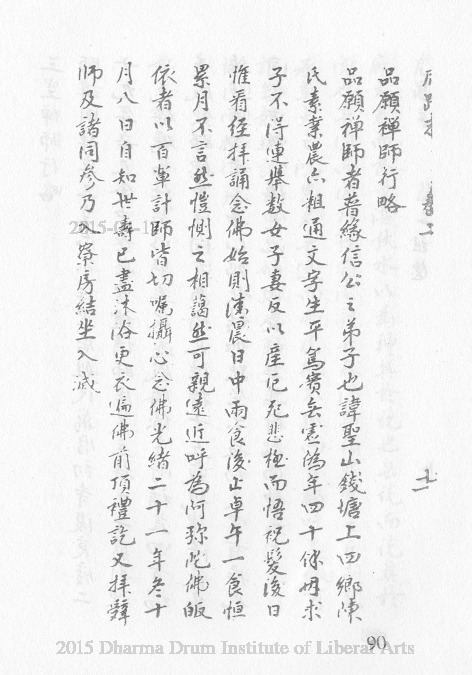 品願禅師行略
品願禅師者普緣信公之弟子也諱聖山錢塘上四鄉陳
氏素業農六粗通文字生平篤實無憲偽年四十餘毋求
子不得連舉數女子妻反以産厄死悲極而悟祝髮後日
惟看經拜誦念佛始則淩晨日中兩食後止卓午一食恒
累月不言然愷惻之相藹然可親遠近呼為阿弥陀佛皈
依者以百軰計師皆切囑攝心念佛光緒二十一年冬十
月八日自知世壽已盡沐浴更衣遍佛前頂禮訖又拜辤
師及諸同参乃入寮房結坐入滅
三
禅師行略
2015
90
2015 Dharma Drum Institute of Liberal Arts